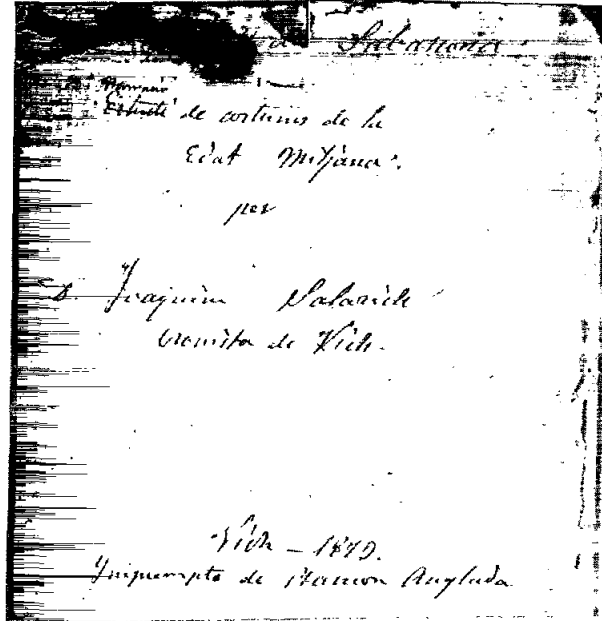 de Sabanona
Estudi de costums de la
Edat Mitjana.
per
D. Joaquim Salarich
Cronista de Vich.
Vich - 1879.
Imprempta de Ramon Anglada